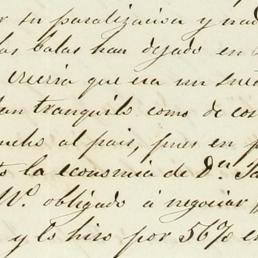 su paralizacion y nad
las balas han dejado en
creeria que era un sue
tan tranquilo como de co
mucho al país, pues en p
la economia de Dn
obligado á negociar
y lo hizo por 56% en